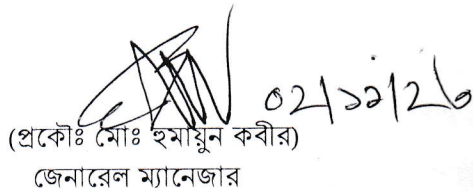 ০২/১২/২৬
(প্রকৌঃ মোঃ হুমায়ুন কবীর)
জেনারেল ম্যানেজার